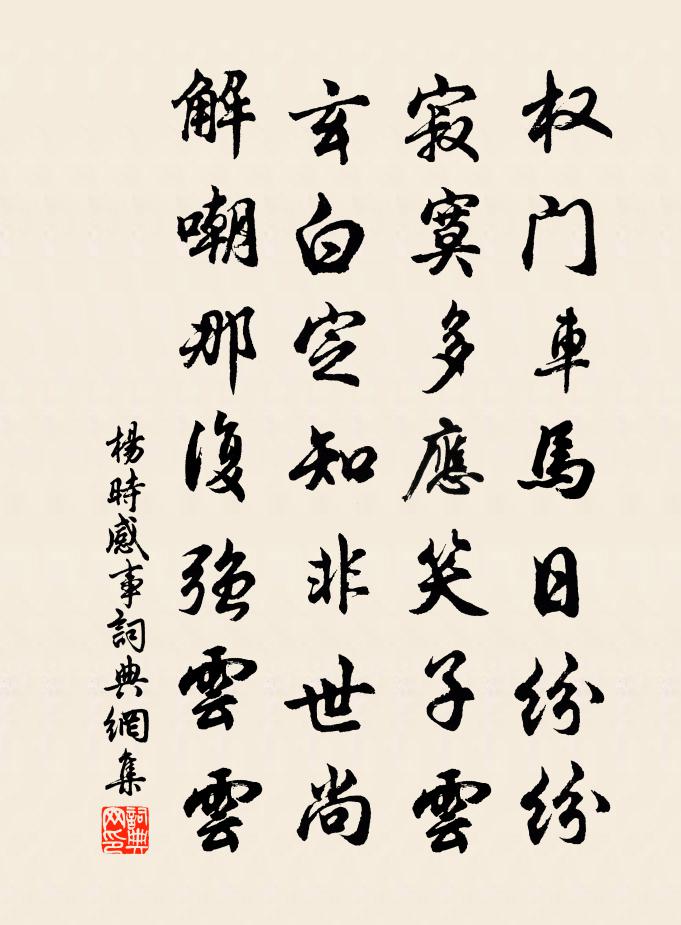 权门車馬日紛紛
寂寞多應笑子雲
玄白定知非世尚
解嘲那復強雲雲
楊時感事詞典網集
詞典网印